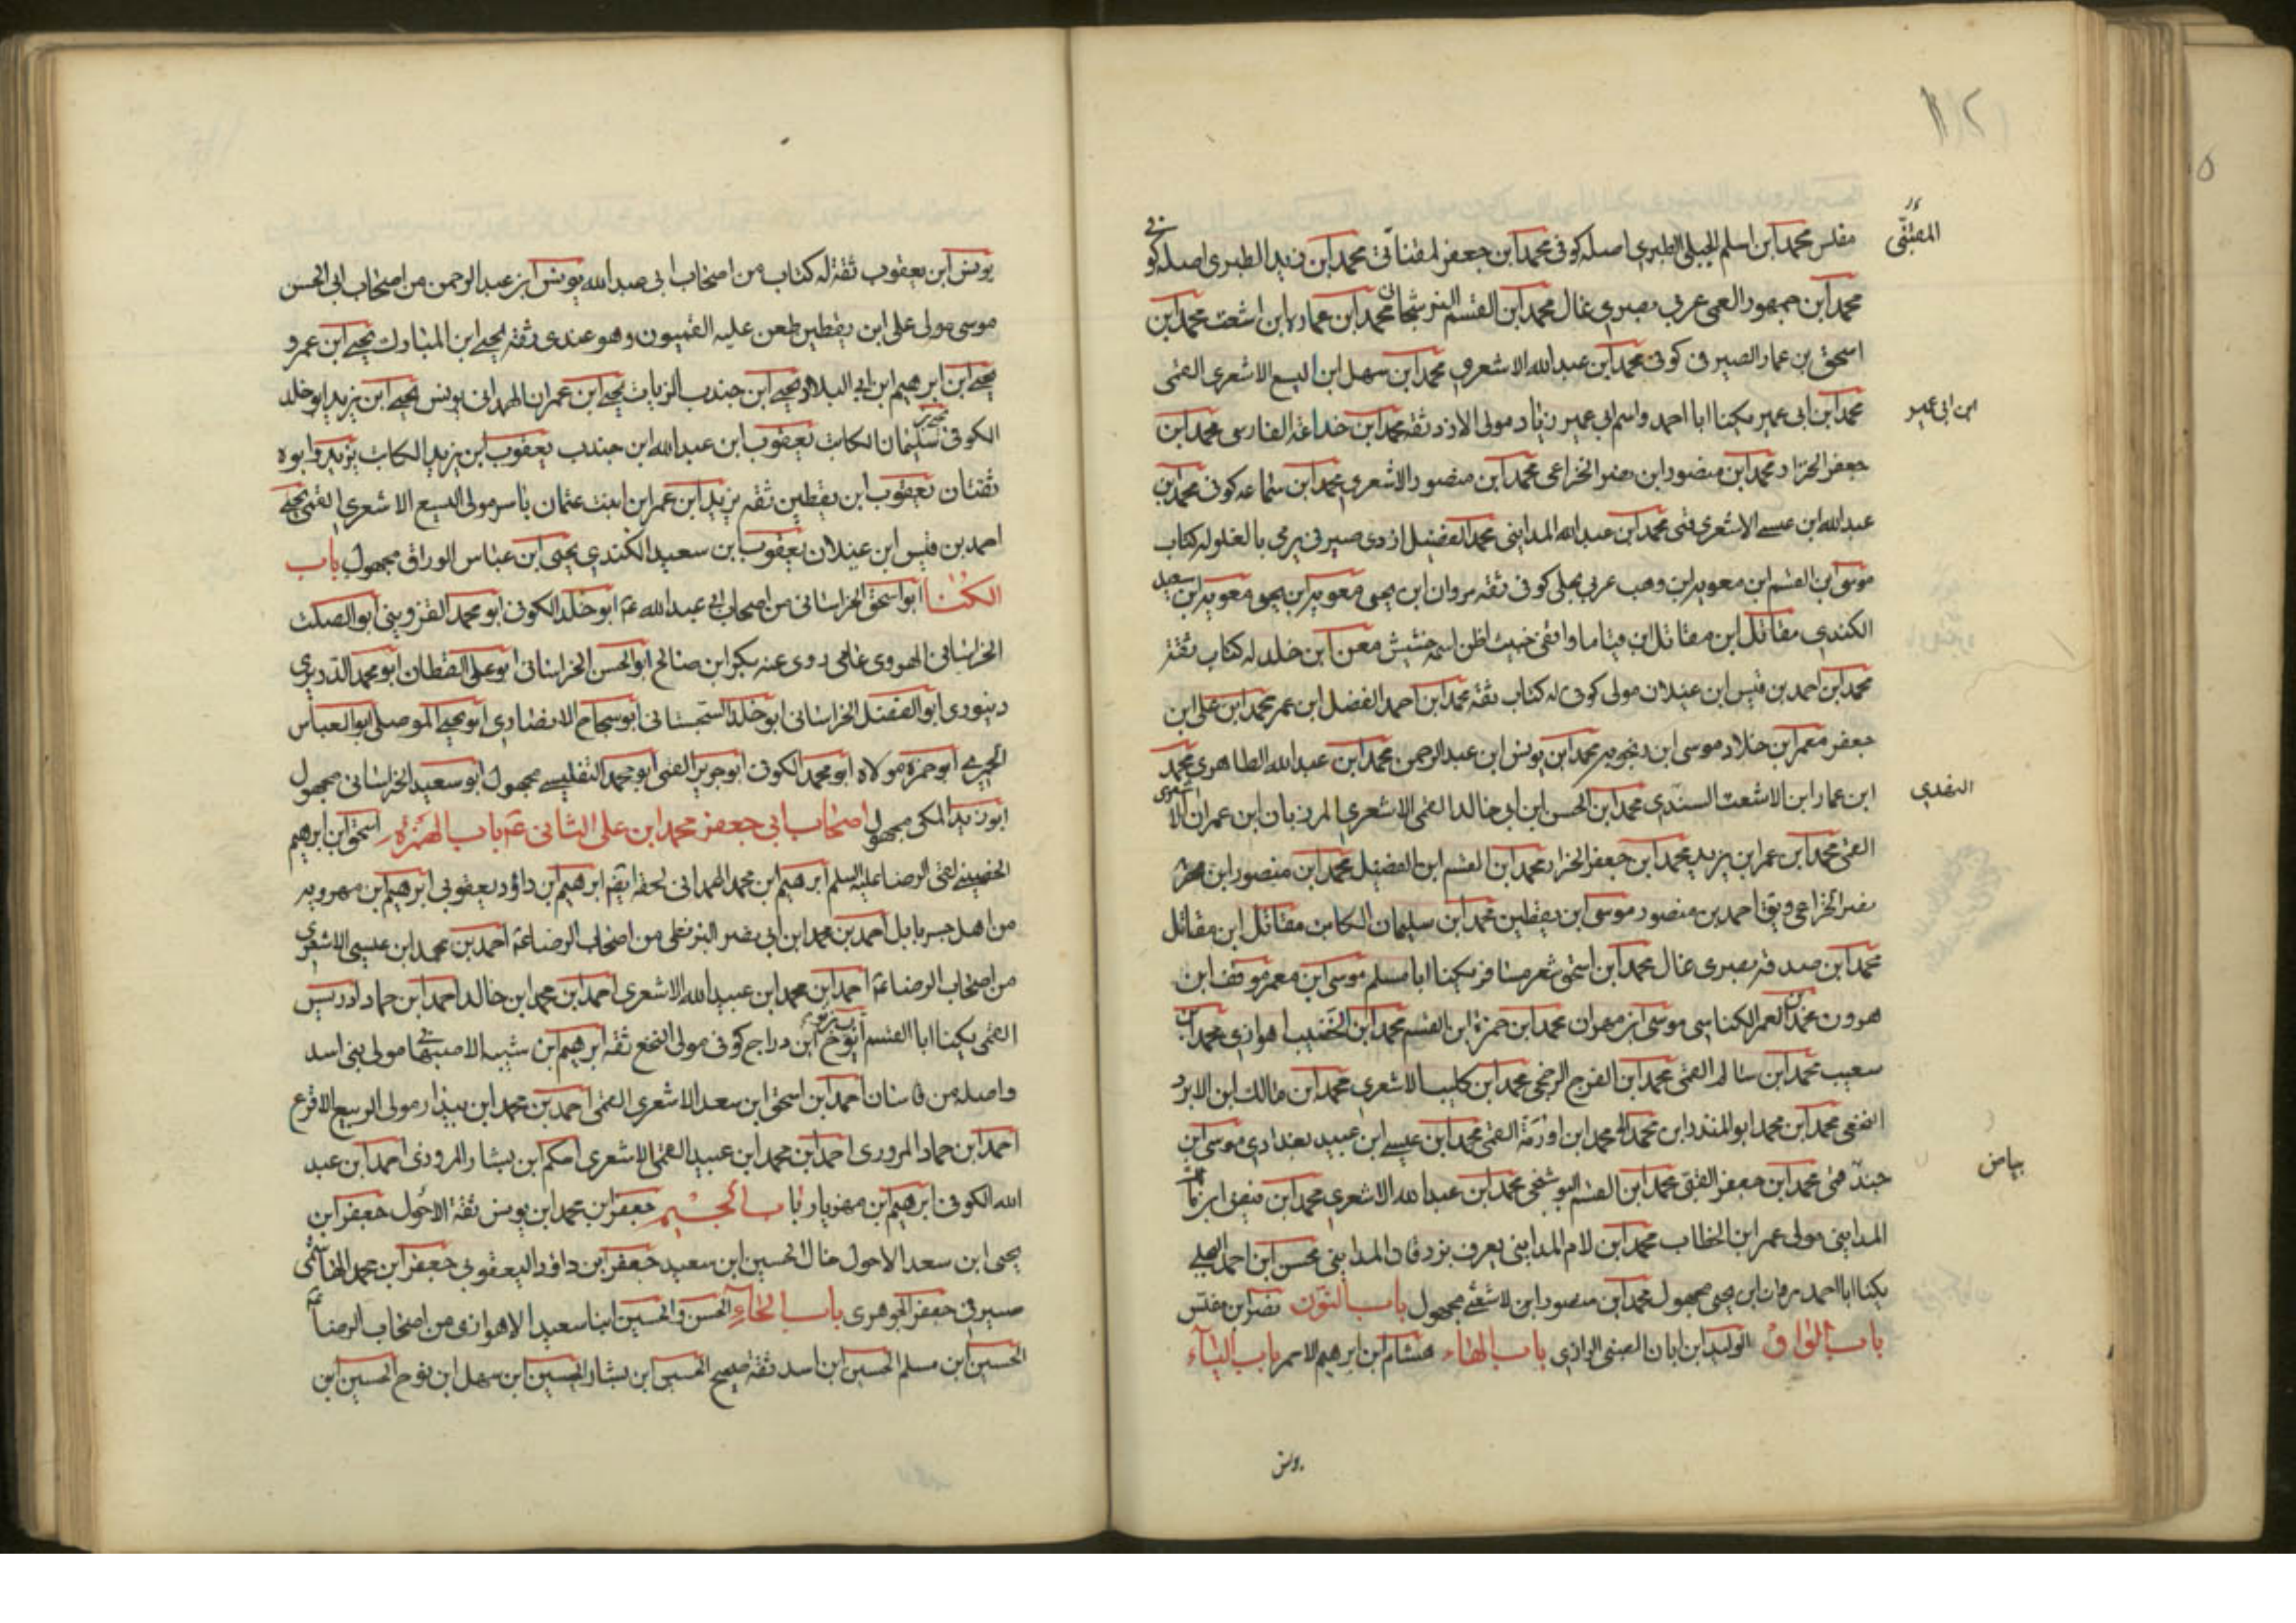 مفلس محمد ابن اسلم الجبلى الطبرى اصله كوفى محمد ابن جعفر المقنائى محمد ابن زيد الطبرى اصله كوفى
محمد ابن جمهور العمى عربى بصرى غال محمد ابن القسم النوشجان محمد ابن عمارة ابن اشعث محمد ابن
اسحق بن عمار الصيرفى كوفى محمد ابن عبد الله الاشعرى محمد ابن سهل ابن اليسع الاشعرى القمى
محمد ابن ابى عمير يكنا ابا احمد واسم ابى عمير زياد مولى الازد ثقة محمد ابن خداغة الفارسى محمد ابن
جعفر الخزاز محمد ابن منصور ابن نصر الخزاعى محمد ابن منصور الاشعرى محمد ابن سماعه كوفى محمد ابن
عبد الله ابن عيسے الاشعرى قمى محمد ابن عبد الله المداينى محمد الفضيل ازدى صيرفى يرمى بالغلو له كتاب
موسى ابن القسم ابن معوية ابن وهب عربى بجلى كوفى ثقة مروان ابن يحيى معوية ابن يحيى معوية ابن سعيد
الكندى مقاتل ابن مقاتل ابن قياما واقفى خبيث اظن اسمه خشيش معن ابن خلد له كتاب ثقة
محمد ابن احمد بن قيس ابن غيلان مولى كوفى له كتاب ثقة محمد ابن احمد الفضل ابن عمر محمد ابن على ابن
جعفر معمر ابن خلاد موسى ابن رنجويه محمد ابن يونس ابن عبد الرحمن محمد ابن عبد الله الطاهرى محمد
ابن عمار ابن الاشعث السندى محمد ابن الحسن ابن ابى خالد القمى الاشعرى المرزبان ابن عمران الاشعرى
القمى محمد ابن عمر ابن يزيد محمد ابن جعفر الخزاز محمد ابن القسم ابن الفضيل محمد ابن منصور ابن
نصر الخزاعى ويق احمد بن منصور موسى ابن يقطين محمد ابن سليمان الكاتب مقاتل ابن مقاتل
محمد ابن صدقة بصرى غال محمد ابن اسحق شعر مسافر يكنا ابا مسلم موسى ابن معمر موقف ابن
هرون محمد ابن العمر الكناسى موسى ابن مهران محمد ابن حمزة ابن القسم محمد ابن الخصيب اهوازى محمد ابن
سعيب محمد ابن سالم القمى محمد ابن الفرج الرخجى محمد ابن كليب الاشعرى محمد ابن مالك ابن الابرد
النخعى محمد ابن محمد ابو المنذر ابن محمد ابن اورمة القمى محمد ابن عيسے ابن عبيد بغدادى موسى ابن
جند قمى محمد ابن جعفر العتق محمد ابن القسم البوشنجى محمد ابن عبد الله الاشعرى محمد ابن
المداينى مولى عمر ابن الخطاب محمد ابن لام المداينى يعرف بزرقان المداينى محسن ابن احمد البجلى
يكنا ابا احمد مروان ابن يحيى مجهول محمد ابن منصور ابن الاشعثى مجهول باب النون نصر ابن مغلس
باب الواو الوليد ابن ابان الضبى الرازى باب الهاء هشام ابن ابرهيم الاحمر باب الياء
ابن ابى عمير
يونس
يونس ابن يعقوب ثقة له كتاب من اصحاب ابى عبد الله يونس ابن عبد الرحمن من اصحاب ابى الحسن
موسى مولى على ابن يقطين طعن عليه القميون وهو عندى ثقة يحيے ابن المبارك يحيے ابن عمرو
يحيے ابن ابرهيم ابن ابى البلاد يحيے ابن جندب الزيات يحيے ابن عمران الهمدانى يونس يحيے ابن يزيد ابو خلد
الكوفى يحيى سليمان الكاتب يعقوب ابن عبد الله ابن جندب يعقوب ابن يزيد الكاتب يزيد وابوه
ثقتان يعقوب ابن يقطين ثقه يزيد ابن عمر ابن بنت عثمان ياسر مولى اليسع الاشعرى القمى يحيے
احمد بن قيس ابن غيلان يعقوب ابن سعيد الكندى يحيى ابن عباس الوراق مجهول باب
الكنا ابو اسحق الخراسانى من اصحاب ابى عبد الله ع ابو خلد الكوفى ابو محمد القزوينى ابو الصلت
الخراسانى الهروى عامى روى عنه بكر ابن صالح ابو الحسن الخراسانى ابو على القطان ابو محمد الدربرى
دينورى ابو الفضل الخراسانى ابو خلد السجستانى ابو سجاح الانصارى ابو يحيے الموصلى ابو العباس
الحميرى ابو حمزة مولاه ابو محمد الكوفى ابو جرير القمى ابو محمد التفليسے مجهول ابو سعيد الخراسانى مجهول
ابو زيد المكى مجهول اصحاب ابى جعفر محمد ابن على الثانى ع باب الهمزة اسحق ابن ابرهيم
الحضينے لقى الرضا عليه السلم ابرهيم ابن محمد الهمدانى لحقه ايضا ابرهيم بن داود يعقوبى ابرهيم ابن مهرويه
من اهل جسر بابل احمد بن محمد ابن ابى نصر البزنطى من اصحاب الرضا ع احمد بن محمد ابن عيسى الاشعرى
من اصحاب الرضا ع احمد ابن محمد ابن عبيد الله الاشعرى احمد ابن محمد ابن خالد احمد ابن حماد ادريس
القمى يكنا ابا القسم ايوب ابن نوح ابن دراج كوفى مولى النخع ثقة ابرهيم ابن شيبه الاصبهانى مولى بنى اسد
واصله من قاسان احمد ابن اسحق ابن سعد الاشعرى القمى احمد بن محمد ابن بيذار مولى الربيع الاقرع
احمد ابن حماد المروزى احمد ابن محمد ابن عبيد القمى الاشعرى احكم ابن بشار المروزى احمد ابن عبد
الله الكوفى ابرهيم ابن مهزيار باب الجيم جعفر ابن محمد ابن يونس ثقة الاحول جعفر ابن
يحيى ابن سعد الاحول خال الحسين ابن سعيد جعفر ابن داود اليعقوبى جعفر ابن محمد الهاشمى
صيرفى جعفر الجوهرى باب الحاء الحسن والحسين ابنا سعيد الاهوازى من اصحاب الرضا ع
الحسين ابن مسلم الحسين ابن اسد ثقة صحيح الحسين ابن بشار الحسين ابن سهل ابن نوح الحسين ابن